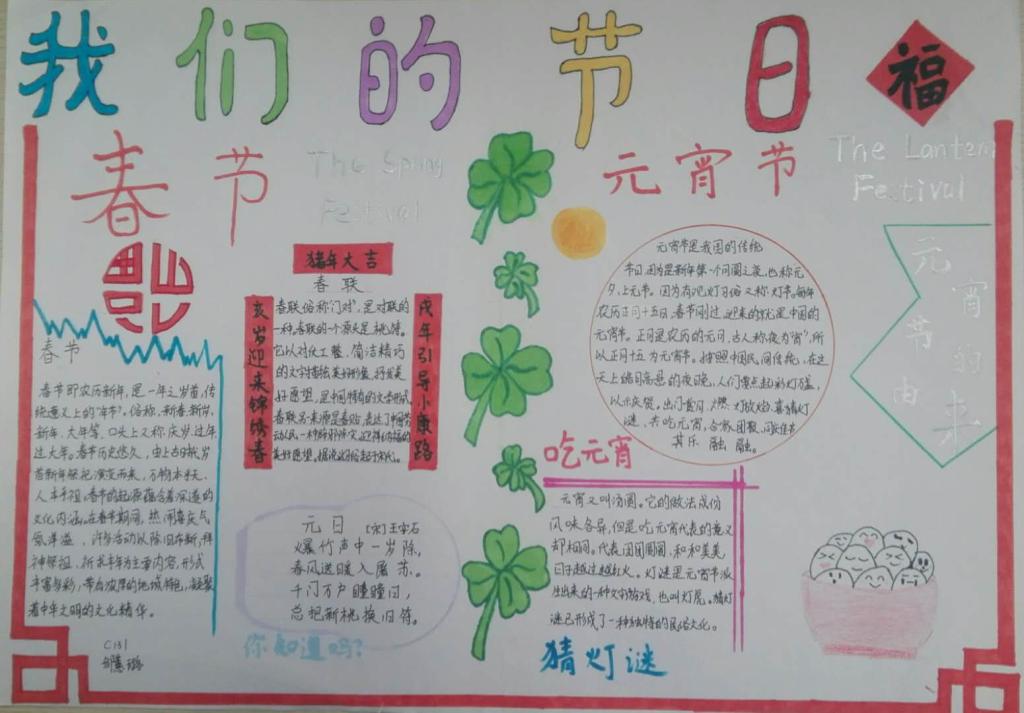 我们的节日
福
春节
The Spring
Festival
元宵节
The Lantern
Festival
猪年大吉
春联
亥岁迎来锦绣春
戌年引导小康路
春联,俗称"门对",是对联的
一种,春联的一个源头是桃符。
它以对仗工整、简洁精巧
的文字描绘美好形象,抒发美
好愿望,是中国特有的文学形式。
春节
春节即农历新年,是一年之岁首,传
统意义上的"年节"。俗称、新春、新岁、
新年、大年等,口头上又称庆岁、过年、
过大年。春节历史悠久,由上古时代岁
首祈年祭祀演变而来。万物本乎天、
人本乎祖,春节的起源蕴含着深邃的
文化内涵。在春节期间,热闹喜庆气
氛洋溢,许多活动以除旧布新、拜
神祭祖、祈求丰年为主要内容,形式
丰富多彩,带有浓厚的地域特色,凝聚
着中华文明的文化精华。
元日 [宋]王安石
爆竹声中一岁除,
春风送暖入屠苏。
千门万户瞳瞳日,
总把新桃换旧符。
你知道吗?
C131
元宵节是我国的传统
节日,因为是新年第一个月圆之夜,也称元
夕、上元节。因为有观灯习俗又称灯节。每年
农历正月十五,春节刚过,迎来的就是中国的
元宵节。正月是农历的元月,古人称夜为"宵",所
以正月十五为元宵节。按照中国民间传统,在这
天上皓月高悬的夜晚,人们要点起彩灯万盏,
以示庆贺。出门赏月、燃灯放焰、喜猜灯
谜、共吃元宵、合家团聚、同庆佳节
其乐融融。
元宵节的由来
吃元宵
元宵又叫汤圆。它的做法成份
风味各异,但是吃元宵代表的意义
却相同。代表团团圆圆,和和美美,
日子越过越红火。灯谜是元宵节派
生出来的一种文字游戏,也叫灯虎。猜灯
谜已形成了一种独特的民俗文化。
猜灯谜